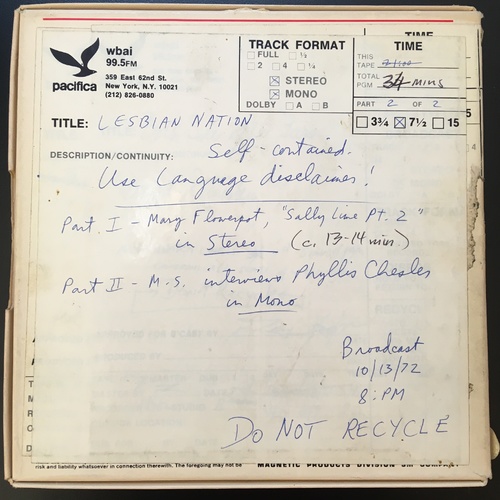 wbai
99.5FM
pacifica
359 East 62nd St.
New York, N.Y. 10021
(212) 826-0880
TRACK FORMAT
FULL ½
2 4 ¼
STEREO
MONO
DOLBY A B
TIME
TIME
THIS
TAPE
TOTAL
PGM 34 MINS
PART 2 OF 2
3¾ 7½ 15
TITLE: LESBIAN NATION
DESCRIPTION/CONTINUITY: Self-contained.
Use Language disclaimer!
Part I - Mary Flowerpot, "Sally Line Pt. 2"
in Stereo (c. 13-14 min.)
Part II - M.S. interviews Phyllis Chesler
in Mono
Broadcast
10/13/72
8:PM
DO NOT RECYCLE
risk and liability whatsoever in connection therewith. The foregoing may not be
MAGNETIC PRODUCTS DIVISION